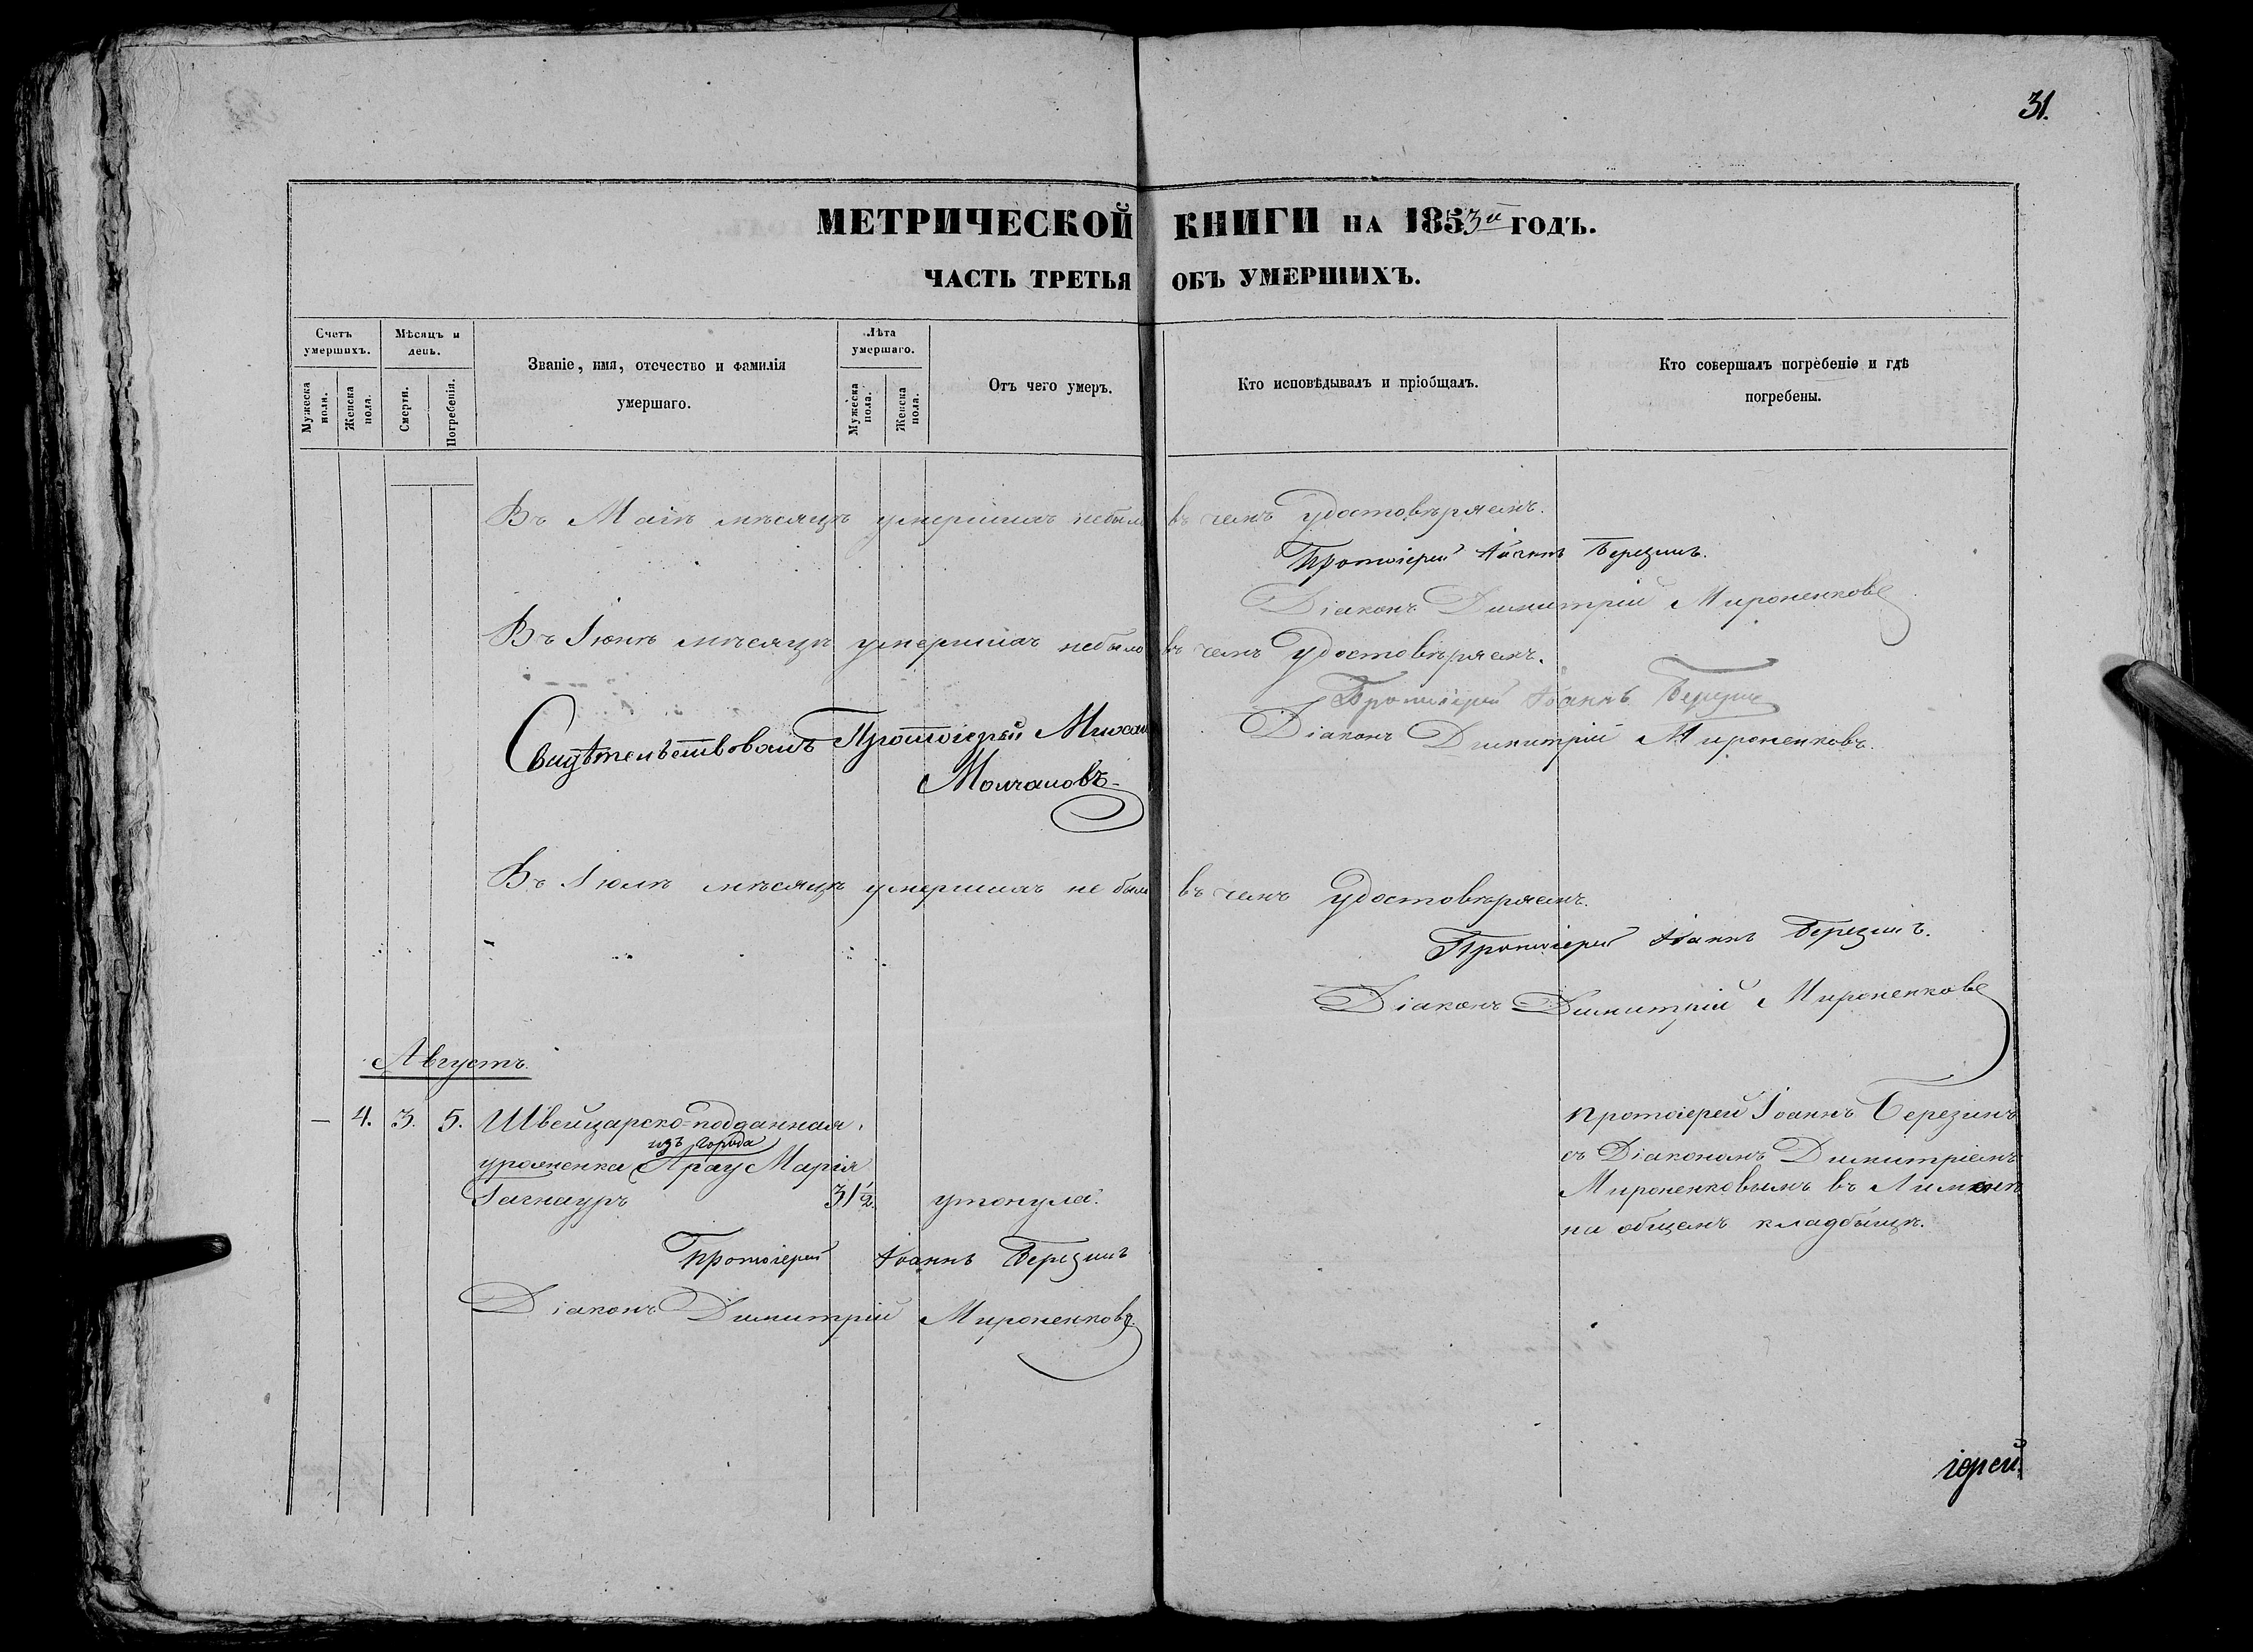 31.
МЕТРИЧЕСКОЙ КНИГИ НА 1853й ГОДЪ.
ЧАСТЬ ТРЕТЬЯ ОБЪ УМЕРШИХЪ.
Счетъ умершихъ.
Мужеска пола.
Женска пола.
Мѣсяцъ и день.
Смерти.
Погребенія.
Званіе, имя, отечество и фамилія
умершаго.
Лѣта умершаго.
Мужеска пола.
Женска пола.
Отъ чего умеръ.
Кто исповѣдывалъ и пріобщалъ.
Кто совершалъ погребеніе и гдѣ
погребены.
Въ Маіѣ мѣсяцѣ умершихъ небыло въ чемъ удостовѣряемъ.
Протоіерей Іоаннъ Березинъ.
Діаконъ Димитрій Мироненковъ
Въ Іюнѣ мѣсяцѣ умершихъ небыло въ чемъ удостовѣряемъ.
Протоіерей Іоаннъ Березинъ
Діаконъ Димитрій Мироненковъ.
Свидѣтельствовалъ Протоіерей Михаи
Молчановъ
Въ Іюлѣ мѣсяцѣ умершихъ не было въ чемъ удостовѣряемъ.
Протоіерей Іоаннъ Березинъ.
Діаконъ Димитрій Мироненковъ
Августъ.
— 4. 3. 5. Швейцарско-подданная,
изъ города
уроженка Арау Марія
31 1/2. утонула.
Протоіерей Іоаннъ Березинъ
съ Діакономъ Димитріемъ
Мироненковымъ въ
на общемъ кладбищѣ.
Протоіерей Іоаннъ Березинъ
Діаконъ Димитрій Мироненковъ.
іерей